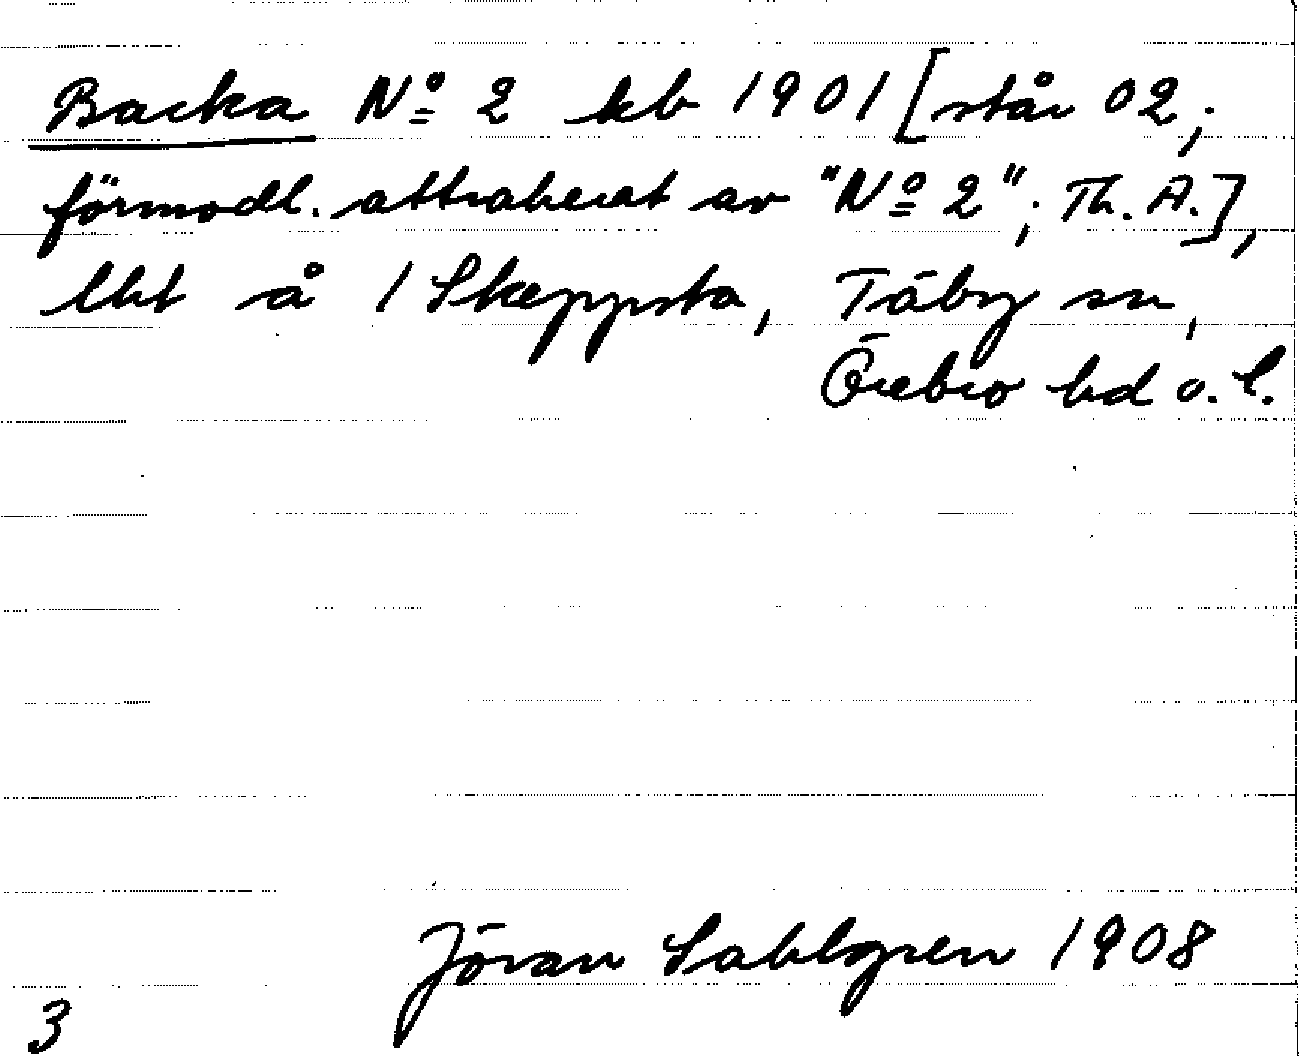 Backa Nº 2 kb 1901 [står 02;
förmodl. attraherat av "Nº 2"; Th. A.],
lht å 1 Skeppsta, Täby sn,
Örebro hd o. l.
Jöran Sahlgren 1908
3